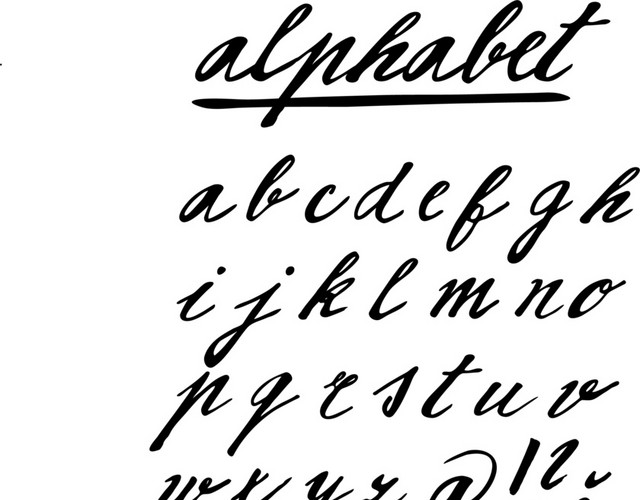 alphabet
a b c d e f g h
i j k l m n o
p q r s t u v
w x y z @ 1 2